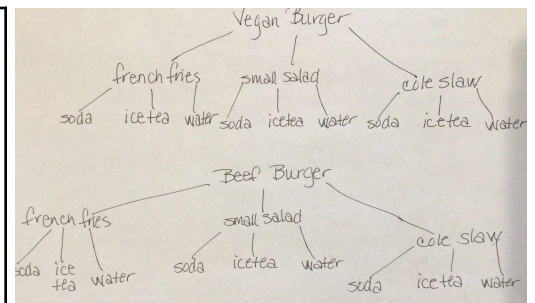 Vegan Burger
french fries small salad cole slaw
soda ice tea water soda ice tea water soda ice tea water
Beef Burger
french fries small salad cole slaw
soda ice tea water soda ice tea water soda ice tea water